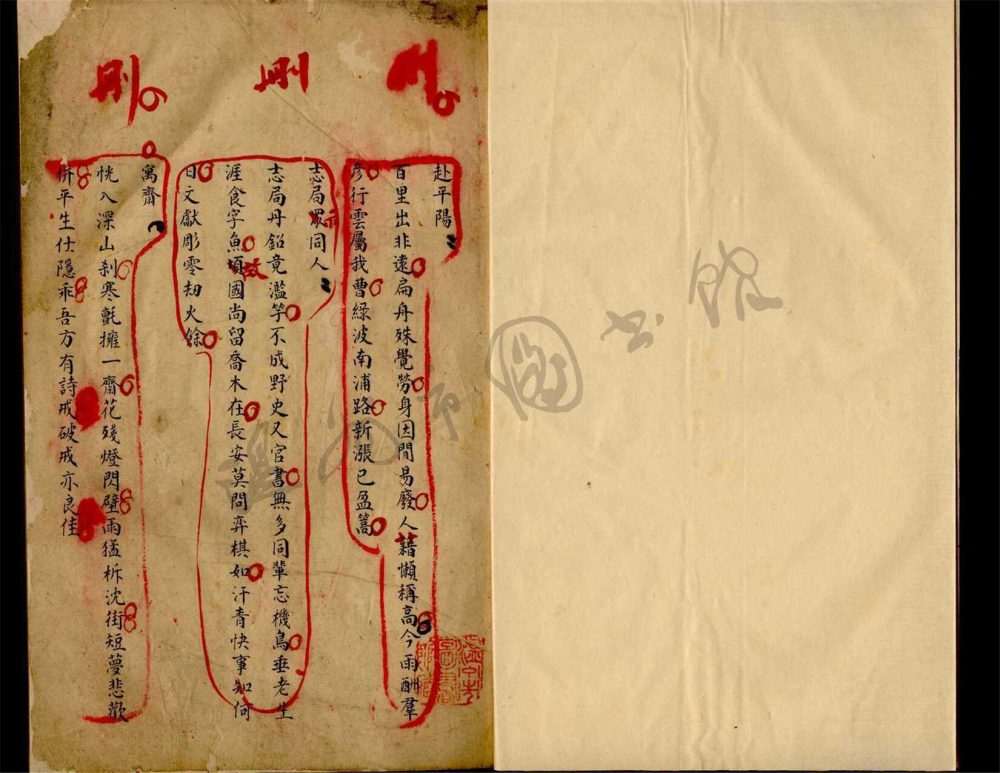 刪
刪
刪
赴平陽
百里出非遠扁舟殊覺勞身因閒易廢人藉懶稱高今雨酬羣
彥行雲屬我曹綠波南浦路新漲已盈篙
志局眾同人
志局丹鉛竟濫竽不成野史又官書無多同輩忘機鳥垂老生
涯食字魚故國尚留喬木在長安莫問弈棋如汗青快事知何
日文獻彫零劫火餘
寓齋
恍入深山刹寒氈擁一齋花殘燈閃壁雨猛柝沈街短夢悲歡
併平生仕隱乖吾方有詩戒破戒亦良佳
溫州市圖書館